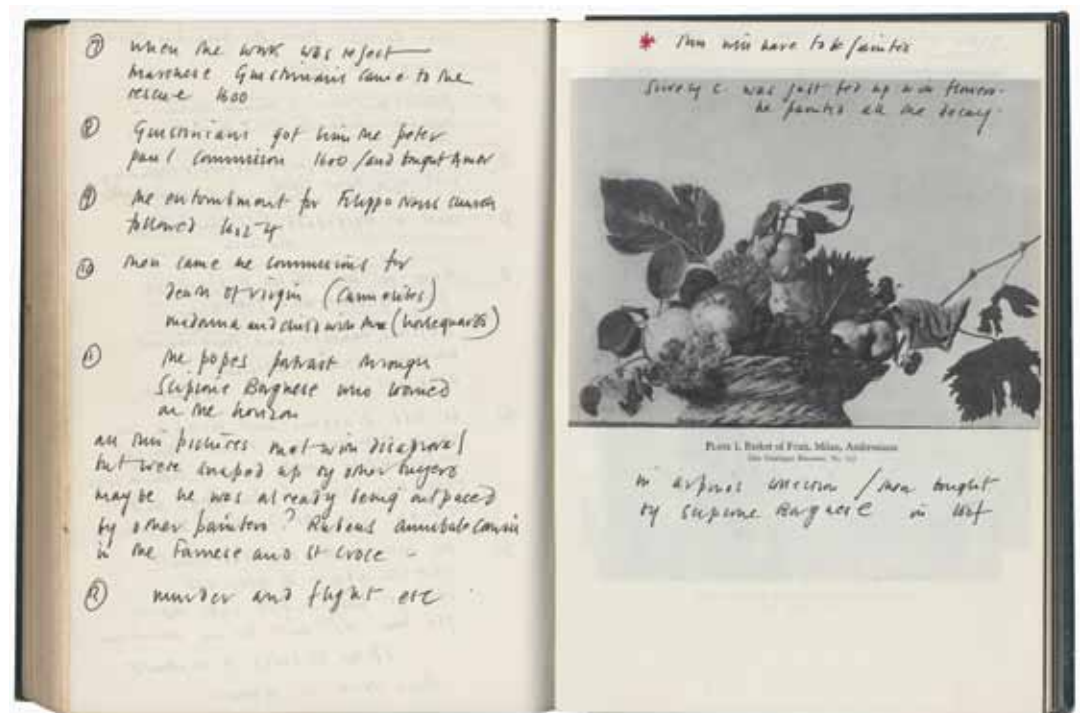 ⑦ when the work was reject
Marchese Giustiniani came to the
rescue 1600
⑧ Giustiniani got him the peter
paul commission 1600 / and bought Amor
⑨ the entombment for Filippo Neris church
followed
⑩ then came the commissions for
death of virgin (Carmelites)
madonna and child with
⑪ the popes portrait through
Scipione Borgnese who loomed
on the horizon
all this pictures met with disaproval
but were snaped up by other buyers
maybe he was already being outpaced
by other painters? Rubens Annibale
in the Farnese and St Croce -
⑫ murder and flight etc
* this will have to be painted
Surely C. was just fed up with flowers.
he painted all the decay.
PLATE I. Basket of Fruit, Milan, Ambrosiana
in collection / then bought
by Scipione Borgnese in